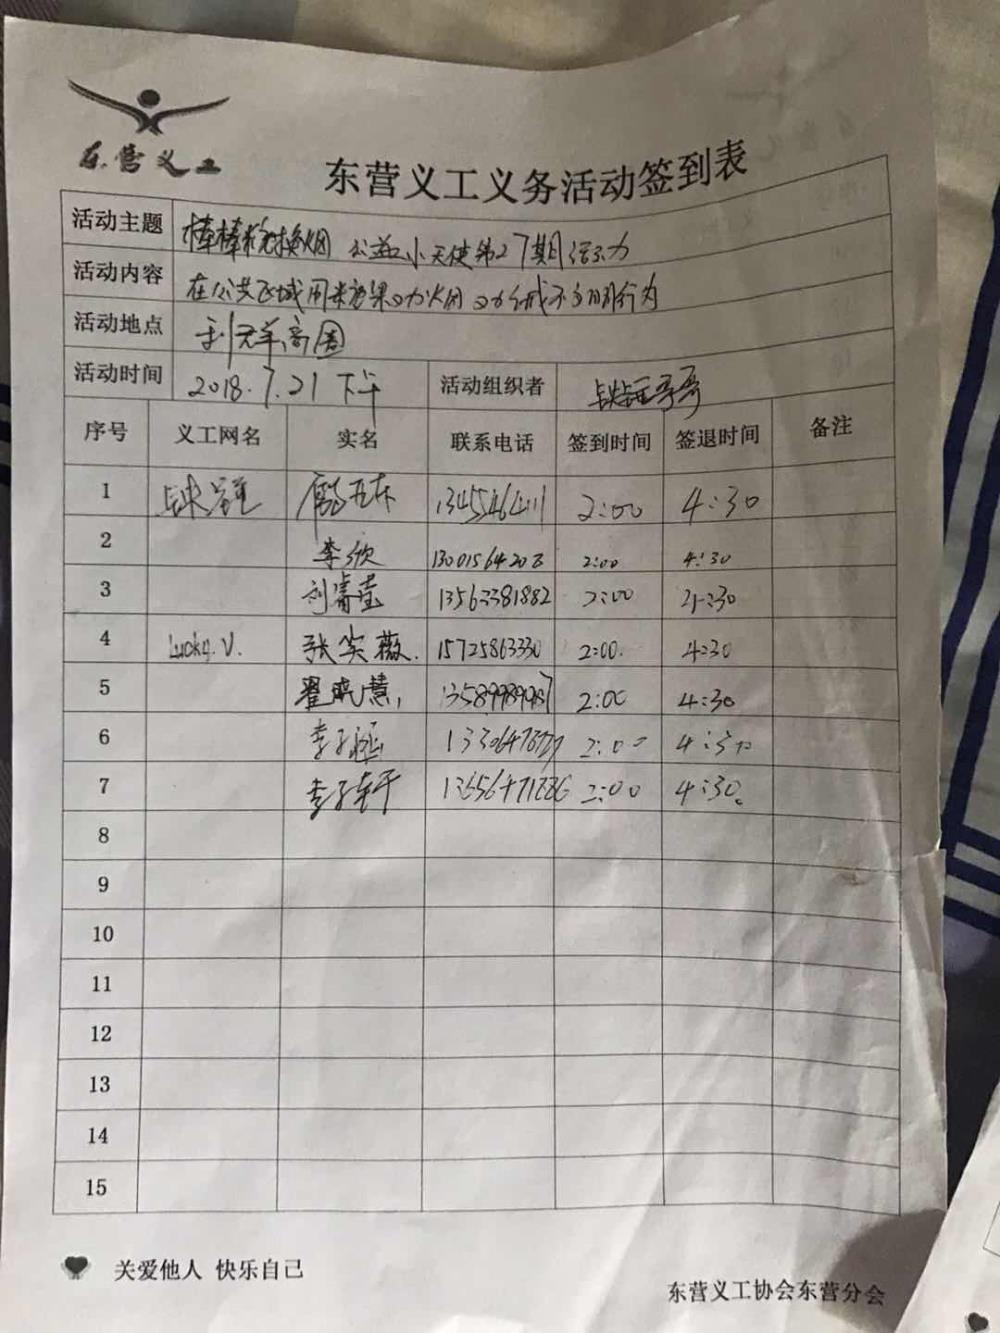 东营义工
东营义工义务活动签到表
活动主题 棒棒糖换烟 公益小天使第27期活动
活动内容 在公共区域用 糖果
活动地点 利群商圈
活动时间 2018.7.21 下午 活动组织者 哥哥
序号 义工网名 实名 联系电话 签到时间 签退时间 备注
1 2:00 4:30
2 李欣 2:00 4:30
3 刘睿莹 13563381882 2:00 4:30
4 Lucky.V. 张笑薇. 15725863330 2:00. 4:30
5 翟晓慧 13589989987 2:00 4:30
6 李子涵 2:00 4:30
7 李子轩 2:00 4:30.
8
9
10
11
12
13
14
15
关爱他人 快乐自己
东营义工协会东营分会